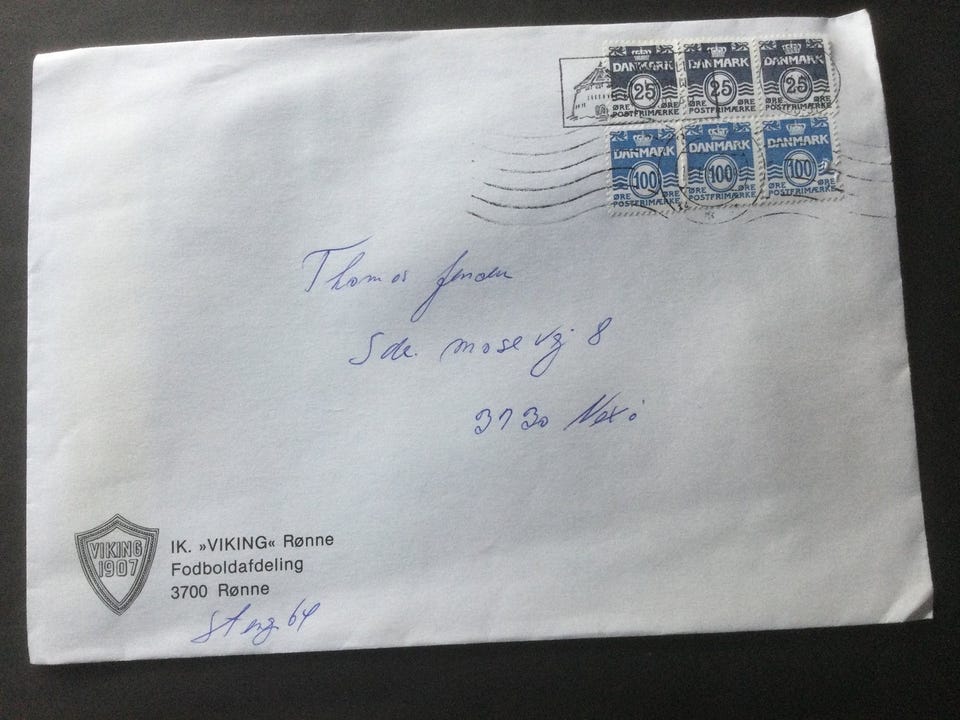 DANMARK DANMARK DANMARK
25 25 25
ØRE ØRE ØRE ØRE ØRE
POSTFRIMÆRKE POSTFRIMÆRKE POSTFRIMÆRKE
DANMARK DANMARK DANMARK
100 100 100
ØRE ØRE ØRE ØRE ØRE ØRE
POSTFRIMÆRKE POSTFRIMÆRKE POSTFRIMÆRKE
Thomas Jensen
Sdr. mose vej 8
3730 Nexø
VIKING
1907
IK. »VIKING« Rønne
Fodboldafdeling
3700 Rønne
64